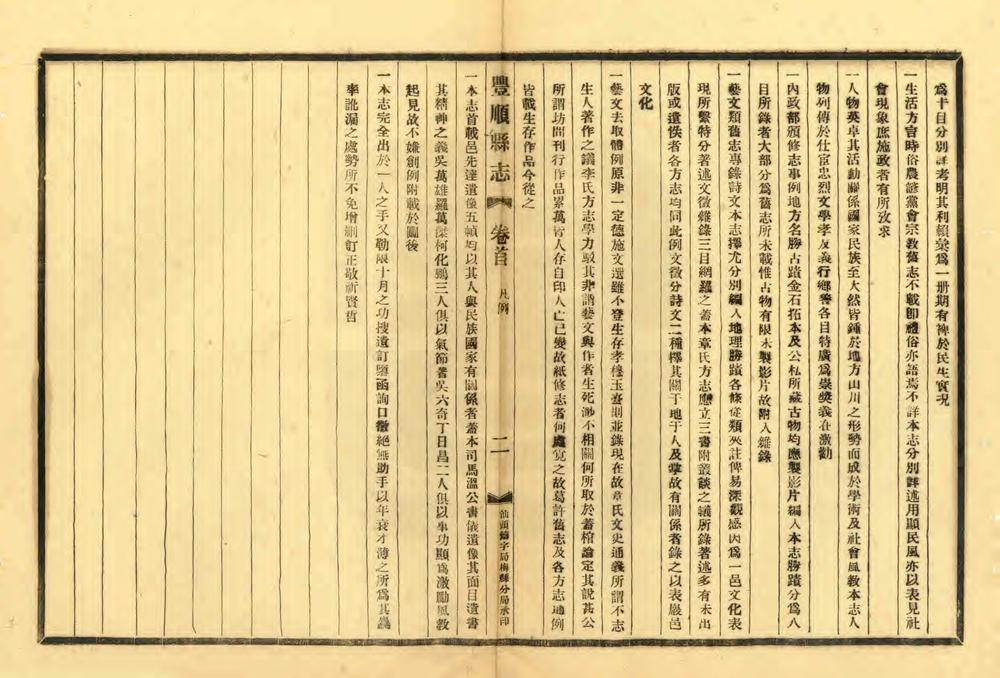 為十目分別詳考明其利賴彙為一册期有裨於民生實現
一生活方言時俗農諺黨會宗教舊志不載卽禮俗亦語焉不詳本志分別詳述用顯民風亦以表見社
會現象庶施政者有所攷求
一人物英卓其活動關係國家民族至大然皆鍾於地方山川之形勢而成於學術及社會風教本志人
物列傳於仕宦忠烈文學孝友義行鄉善各目特廣為崇獎義在激勸
一內政部頒修志事例地方名勝古蹟金石拓本及公私所藏古物均應製影片編入本志勝蹟分為八
目所錄者大部分為舊志所未載惟古物有限未製影片故附入雜錄
一藝文類舊志專錄詩文本志擇尤分別編入地理勝蹟各條從類夾註俾易深觀感因為一邑文化表
現所繫特分著述文徵雜錄三目網羅之蓋本章氏方志應立三書附叢談之議所錄著述多有未出
版或遺佚者各方志均同此例文徵分詩文二種擇其關于地于人及掌故有關係者錄之以表嚴邑
文化
一藝文去取體例原非一定德施文選雖不登生存孝穆玉臺則並錄現在故章氏文史通義所謂不志
生人著作之議李氏方志學力駁其非謂藝文與作者生死渺不相關何所取於蓋棺論定其說甚公
所謂坊間刊行作品累萬皆人存自印人亡已變故紙修志者何處覓之故葛許舊志及各方志通例
皆載生存作品今從之
豐順縣志 卷首 凡例 二 汕頭鑄字局梅縣分局承印
一本志首載邑先達遺像五幀均以其人與民族國家有關係者蓋本司馬溫公書儀遺像其面目遺書
其精神之義吳萬雄羅萬傑柯化鵬三人俱以氣節著吳六奇丁日昌二人俱以事功顯為激勵風教
起見故不嫌創例附載於圖後
一本志完全出於一人之手又勒限十月之功搜遺訂墜函詢口徵絕無助手以年衰才薄之所為其
率訛漏之處勢所不免增刪訂正敬祈賢哲